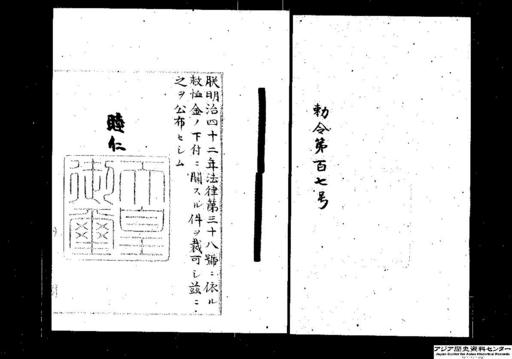 勅令第百七号
朕明治四十二年法律第三十八號ニ依ル
救恤金ノ下付ニ關スル件ヲ裁可シ茲ニ
之ヲ公布セシム
睦仁
天皇御璽
アジア歴史資料センター
Japan Center for Asian Historical Records